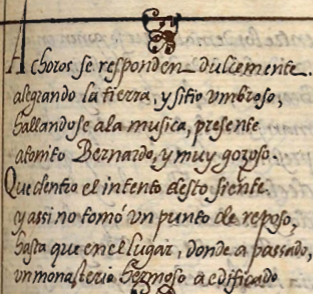 A choros se responden dulcemente.
alegrando la tierra, y sitio vmbroso,
hallandose ala musica, presente
atonito Bernardo, y muy gozoso.
Que dentro el intento desto siente,
y assi no tomó vn punto de reposo,
hasta que en el lugar, donde a passado,
vn monasterio hermoso a edifficado